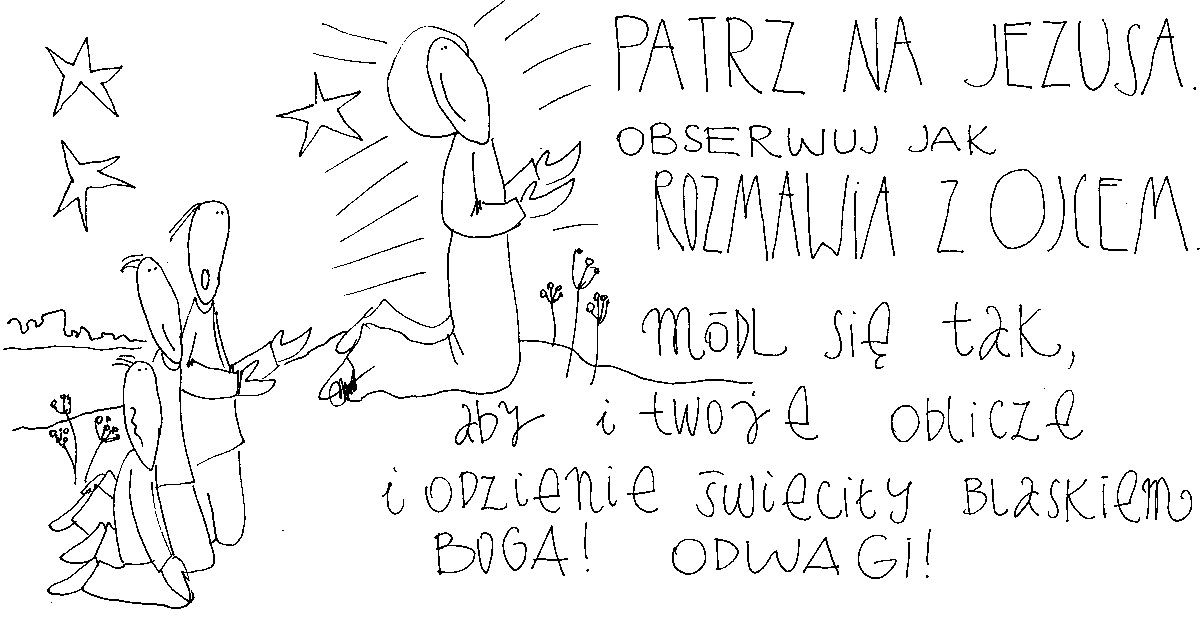 PATRZ NA JEZUSA.
OBSERWUJ JAK
ROZMAWIA Z OJCEM.
MÓDL SIĘ tak,
aby i twoje obliczE
i ODZIENIE świeciły BLaSKIEM
BOGA! ODWAGI!